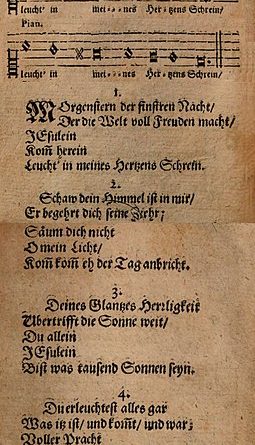 leucht' in mei⸗⸗⸗nes Her⸗tzens Schrein/
Pian.
leucht' in mei⸗⸗nes Her⸗tzens Schrein/
1.
MOrgenstern der finstren Nacht/
Der die Welt voll Freuden macht/
JEsulein
Kom̃ herein
Leucht' in meines Hertzens Schrein.
2.
Schaw dein Himmel ist in mir/
Er begehrt dich seine Ziehr;
Säum dich nicht
O mein Licht/
Kom̃ kom̃ eh der Tag anbricht.
3.
Deines Glantzes Herrligkeit
Ubertrifft die Sonne weit/
Du allein
JEsulein
Bist was tausend Sonnen seyn.
4.
Du erleuchtest alles gar
Was itz ist/ und kom̃t/ und war;
Voller Pracht